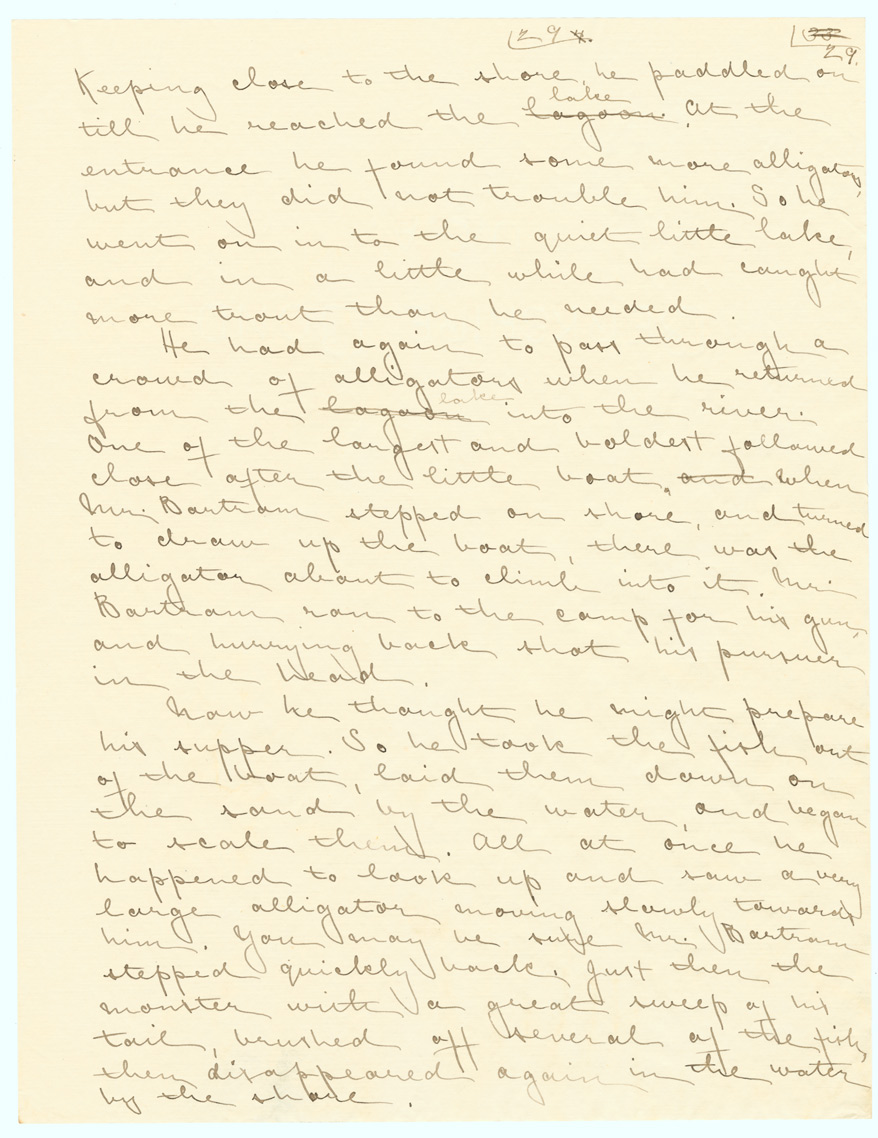 29
29.
Keeping close to the shore, he paddled on
lake
till he reached the lagoon. At the
entrance he found some more alligators,
but they did not trouble him. So he
went on into the quiet little lake,
and in a little while had caught
more trout than he needed.
He had again to pass through a
crowd of alligators when he returned
lake
from the lagoon into the river.
One of the largest and boldest followed
close after the little boat, and When
Mr. Bartram stepped on shore, and turned
to draw up the boat, there was the
alligator about to climb into it. Mr.
Bartram ran to the camp for his gun,
and hurrying back shot his pursuer
in the head.
Now he thought he might prepare
his supper. So he took the fish out
of the boat, laid them down on
the sand by the water, and began
to scale them. All at once he
happened to look up and saw a very
large alligator moving slowly towards
him. You may be sure Mr. Bartram
stepped quickly back. Just then the
monster with a great sweep of his
tail, brushed off several of the fish,
then disappeared again in the water
by the shore.